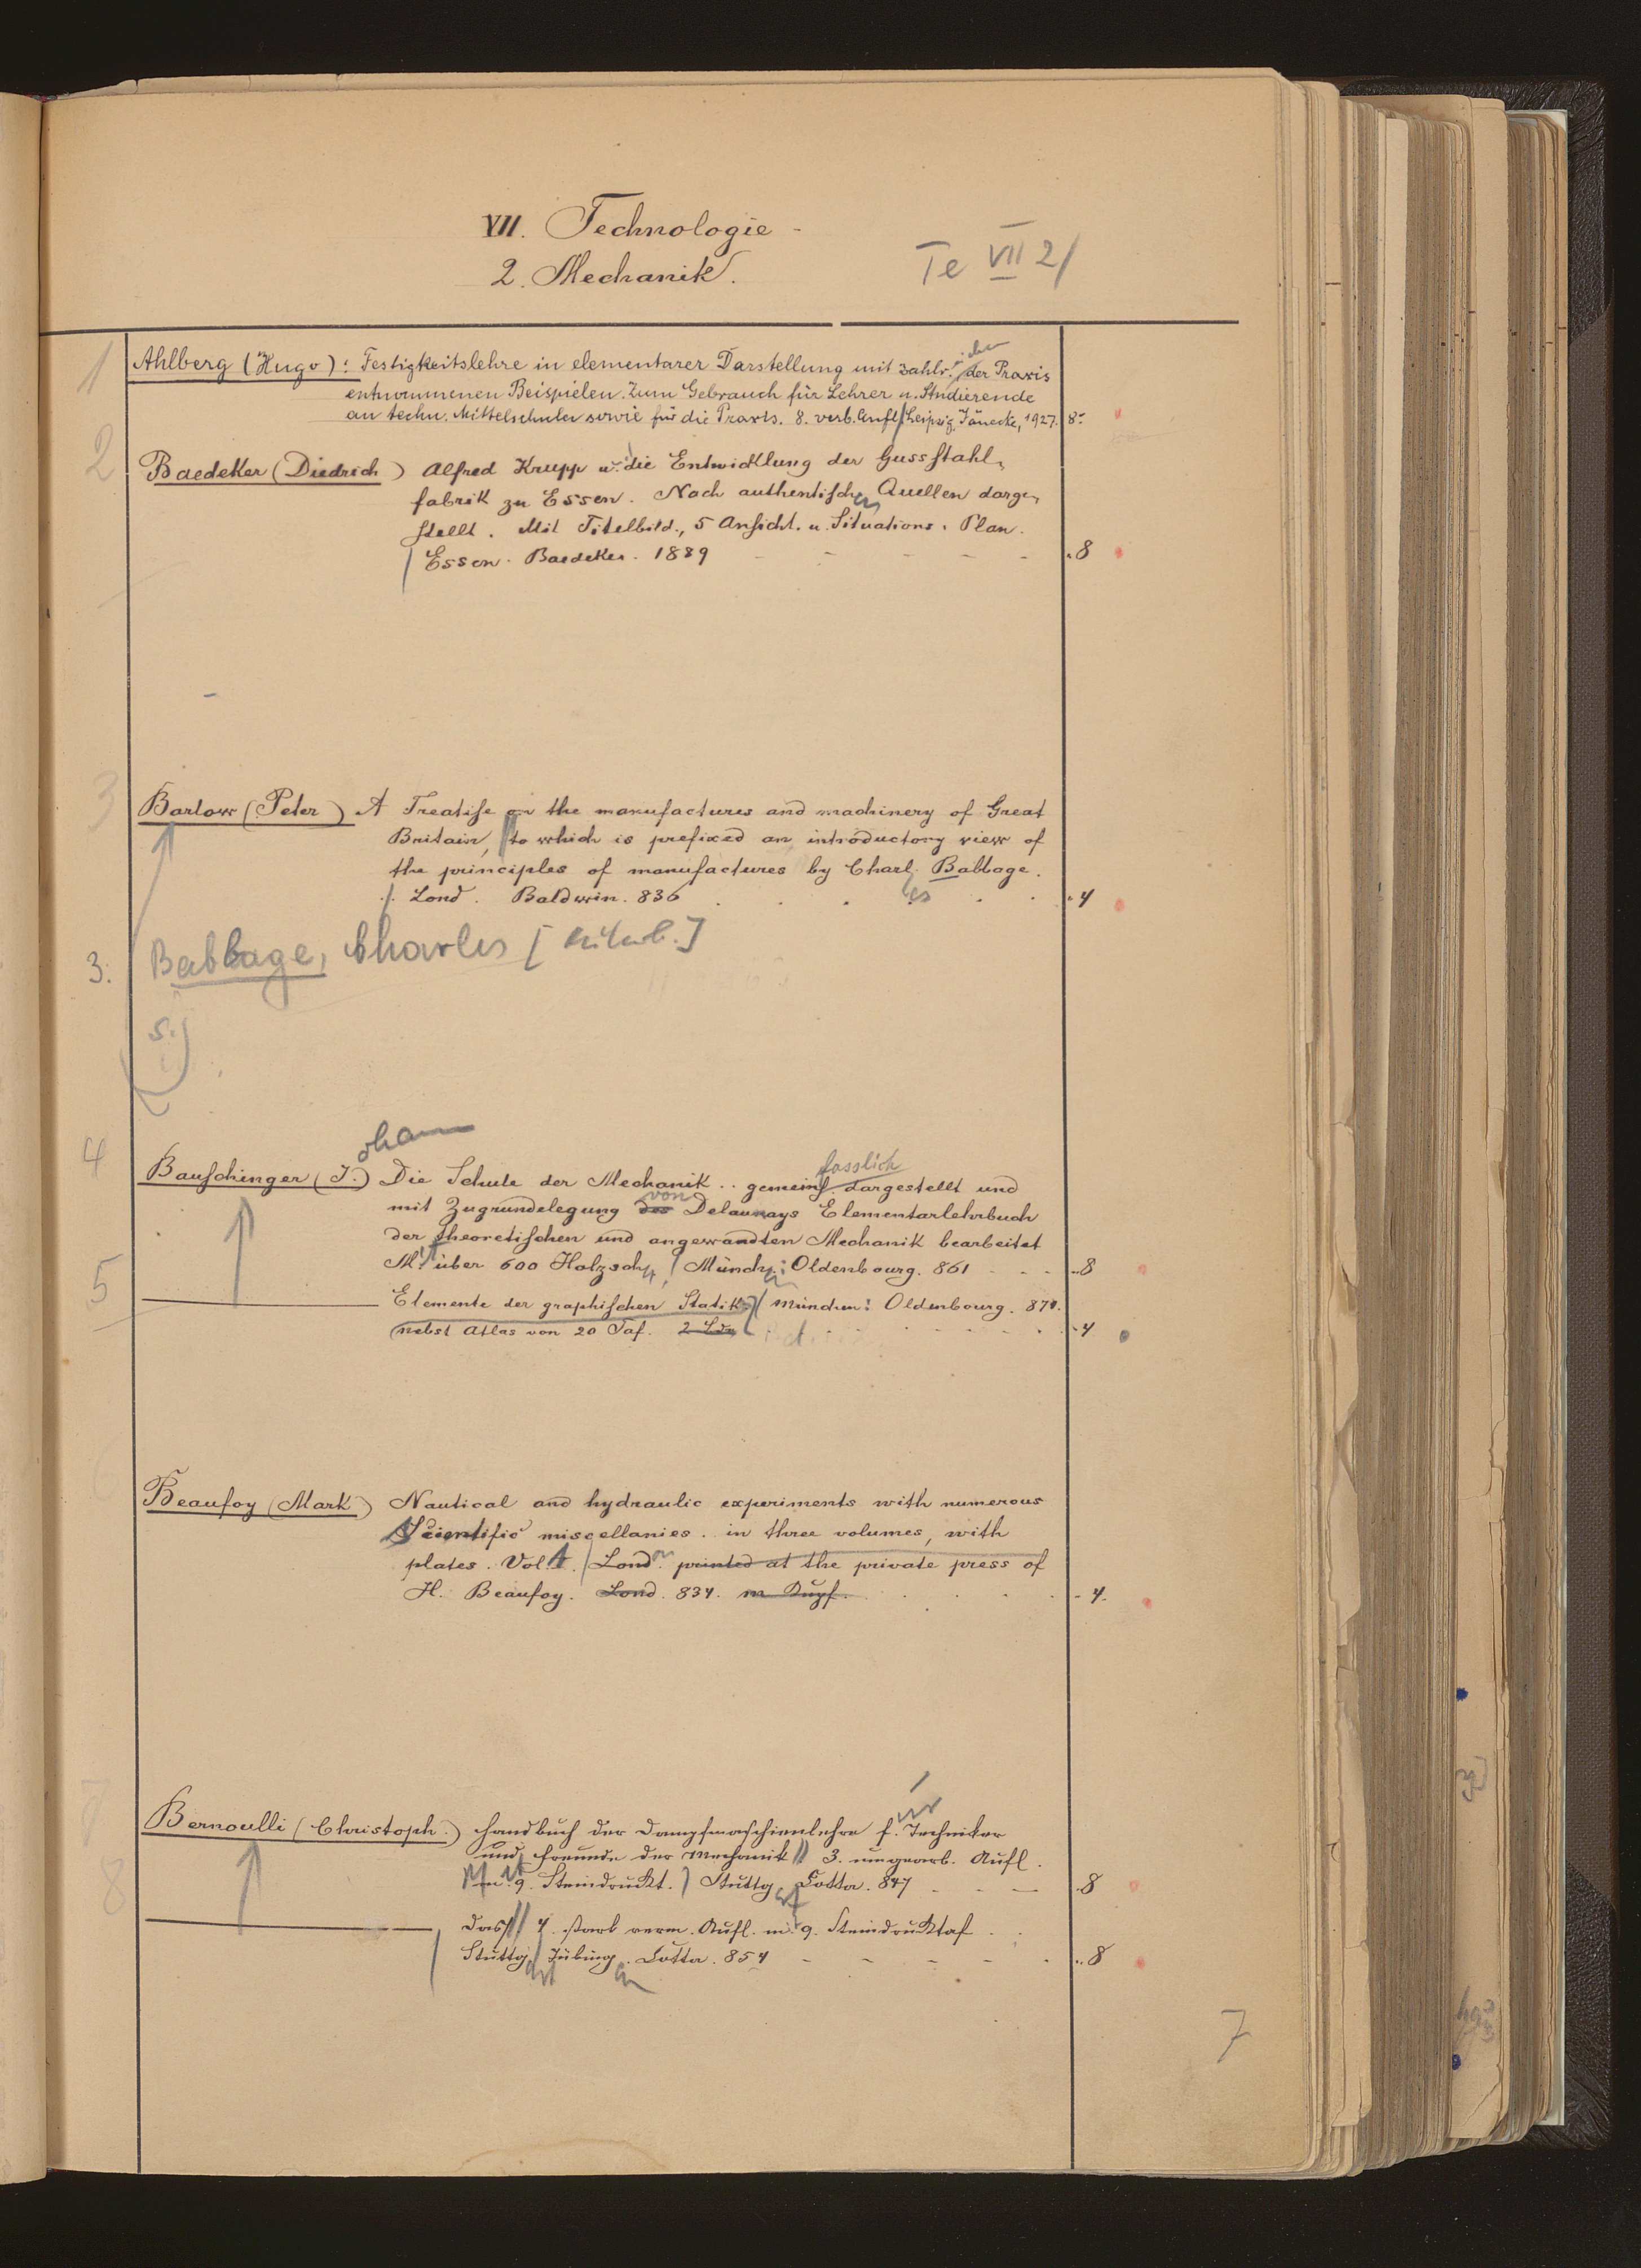 VII. Technologie -
2. Mechanik.
Te VII 2/
1
Ahlberg (Hugo): Festigkeitslehre in elementarer Darstellung mit zahlr. ichen der Praxis
entnommenen Beispielen. Zum Gebrauch für Lehrer u. Studierende
an techn. Mittelschulen sowie für die Praxis. 8. verb. Aufl. / Leipzig, Jänecke, 1927. 8°
2
Baedeker (Diedrich) Alfred Krupp u. die Entwicklung der Gussstahl-
fabrik zu Essen. Nach authentischen Quellen darge-
stellt. Mit Titelbild., 5 Ansicht. u. Situations-Plan.
/ Essen. Baedeker. 1889 8
3
Barlow (Peter) A Treatise on the manufactures and machinery of Great
Britain, to which is prefixed an introductory view of
the principles of manufactures by Charles Babbage.
/. Lond. Baldwin. 836 4
3. Babbage, Charles [Mitarb.]
s.
4
ohann
Bauschinger (J.) Die Schule der Mechanik .. gemeinf. fasslich dargestellt und
mit Zugrundelegung des von Delaunays Elementarlehrbuch
der theoretischen und angewandten Mechanik bearbeitet
Mit über 600 Holzsch., / Münch.: Oldenbourg. 861 8
5
Elemente der graphischen Statik. / München: Oldenbourg. 871.
(nebst Atlas von 20 Taf. 4
Beaufoy (Mark) Nautical and hydraulic experiments with numerous
Scientific miscellanies. in three volumes, with
plates. Vol. 1. / Lond. printed at the private press of
H. Beaufoy. Lond. 834. m Kupf. 4.
7
Bernoulli (Christoph.) Handbuch der Dampfmaschienlehre für Techniker
und Freunde der Mechanik // 3. umgearb. Aufl.
m. 9. Steindruckt.) Stuttg. Cotta. 847 8
8
Das // 4. stark verm. Aufl. m. 9. Steindrucktaf.
Stuttg. / Tübing. Cotta. 854 8
7